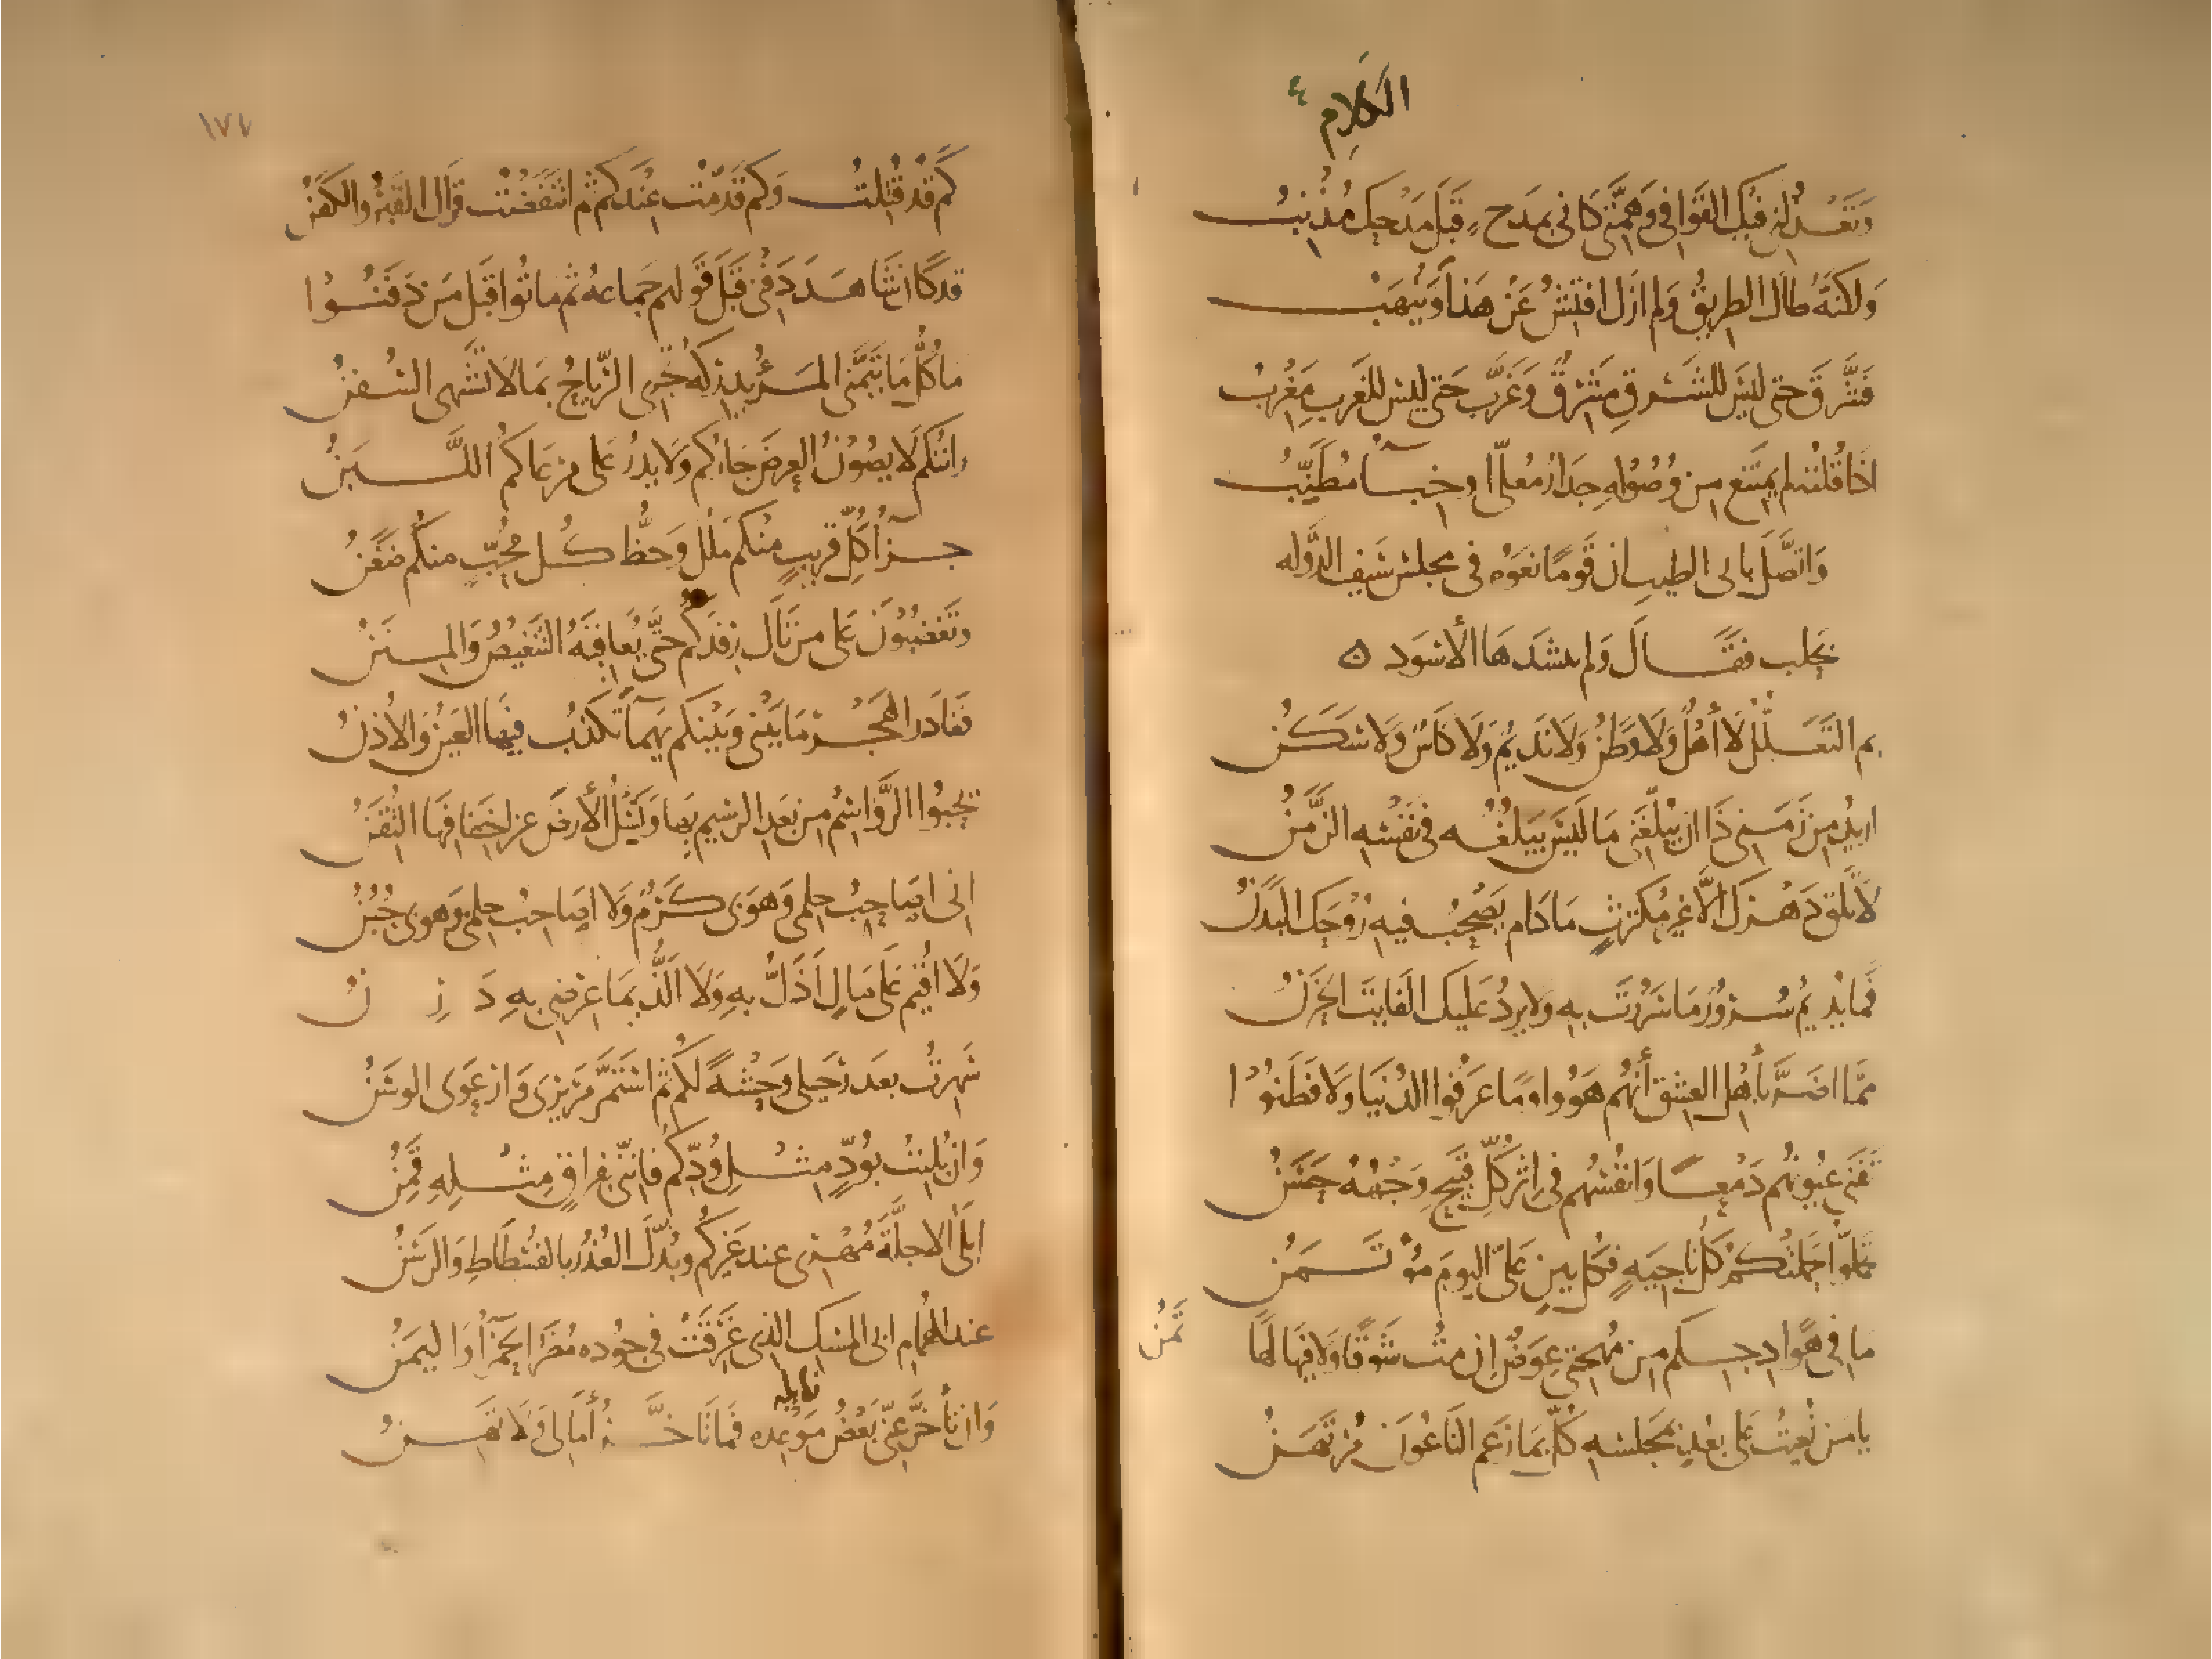 الكلام ٤
وَتَعْذُلُنى فيكَ القَوَافى وَهِمَّتى كَانى بمَدح قَبلَ مَدحِكَ مُذنِبُ
وَلكنَّهُ طَالَ الطريقُ وَلم ازَل افَتَّشُ عَنْ هَذا وَيُنهَبُ
فَشَرَّقَ حَتى ليسَ للشَرقِ مَشرِقٌ وَغَرَّبَ حَتى ليسَ للغَربِ مَغْرِبُ
اذَا قُلتُه لم يمتنع مِن وُصُولهِ جِدَارٌ مُعلّا او خِبَاءٌ مُطَنَّبُ
وَاتصَّلَ بابى الطيبِ ان قَومًا نعَوْه فى مجلس سَيفِ الدَّوله
بحَلب فقَالَ وَلم ينشدهَا الأسوَد ه
بم التَعَلّلُ لَا أهْلٌ وَلَا وَطَنُ وَلَا نَديمٌ وَلَا كَاسٌ وَلَا سَكَنُ
اريدُ مِن زَمَنى ذَا ان يُبلّغَنى مَا ليسَ يَبلغُه فى نَفسِه الزَّمَنُ
لَا تَلقَ دَهْرَكَ الَّا غيرَ مُكترِثٍ مَا دَام يَصْحبُ فيهِ رُوحَكَ البَدَنُ
فَما يُدِيمُ سُرُورٌ مَا سُرِرْتَ بِهِ وَلَا يردُ عَليكَ الفَايتَ الحَزَنُ
ممَّا اضَرَّ بأهْل العِشق أنهُم هَوُوا وَمَا عَرَفوا الدُنيَا وَلَا فَطَنُوا
تَفنى عيُونهُم دَمْعًا وَانفُسُهُم فى اِثرِ كلِّ قَبيحٍ وَجْهُهُ حَسَنُ
تحمّلوا حَمَلتكُمْ كلّ نَاجيَةٍ فكل بَينٍ عَلىَّ اليومَ مُؤْتَمَنُ
مَا فى هَوَادِجِكم مِن مُهجَتى عِوَضٌ اِن مُتُّ شَوقًا وَلَا فِيهَا لهَا
ثَمَنُ
يا مَن نُعِيتُ عَلى بعْدٍ بمَجلِسِه كلٌّ بمَا زَعَمَ النَاعُونَ مُرتَهَنُ
١٧٧
كَم قَدْ قُتِلتُ وَكم قَد مُتُّ عِنْدَكمُ ثم انتفَضتُ فزَالَ القَبرُ وَالكَفَنُ
قد كَانَ شَاهَدَ دَفْنى قَبلَ قَولهم جَماعَه ثم مَاتُوا قَبلَ مَن دَفَنُوا
مَا كلُّ مَا يَتَمنَّى المَرْءُ يدرِكُهُ تجرِى الرّيَاحُ بمَا لَا تَشتَهى السُفنُ
رايتكُم لَا يَصُونُ العِرضَ جَارُكم وَلَا يدرُ عَلى مَرعَاكمُ اللَّبَنُ
جَزَآءُ كلِّ قَريبٍ مِنكُم مَلَلٌ وَحظُّ كُل مُحِبٍّ منكُم ضَغَنُ
وَتَغضبُونَ عَلى مَن نَالَ رِفدَكُم حَتَّى يُعَاقِبَهُ التَنغيصُ وَالمِنَنُ
فغَادَرَ الهَجْرُ مَا بَيْنى وَبينكم يَهمآءَ تَكذبُ فيهَا العَينُ وَالأذنُ
تحبُوا الرَّوَاسِمُ مِن بَعدِ الرسِيم بهَا وَتَسْئلُ الأرضَ عن اخفَافِهَا الثَّفِنُ
انى اصَاحِبُ حِلمى وَهوَ بى كَرَمٌ وَلَا اصَاحبُ حِلمى وَهو بى جُبُنُ
وَلَا اقيمُ عَلى مَالٍ اَذَلُّ بهِ وَلَا الَذُّ بمَا عِرضى بهِ دَرِنُ
سَهِرتُ بعَدَ رَحيلى وَحْشَةً لكُم ثم استَمَرَّ مَرِيرى وَارعَوَى الوسَنُ
وَان بُليتُ بوُدٍّ مِثلِ وُدّكُم فَانَّنى بِفرَاقٍ مِثلِهِ قَمِنُ
ابلَى الاجِلَّةَ مُهْرى عند غَيركُم وَبُدِّلَ العُذْرُ بالفُسطَاطِ وَالرَسَنُ
عندَ الهُمَامِ ابى المسْكِ الذى غَرِقَتْ فى جُودِه مُضَرُ الحَمرَآءِ وَاليَمَنُ
نايله
وَان تأخّرَ عَنّى بَعْضُ مَوْعِدِه فَمَا تَأخَّرُ أمَالى وَلَا تَهِنُ